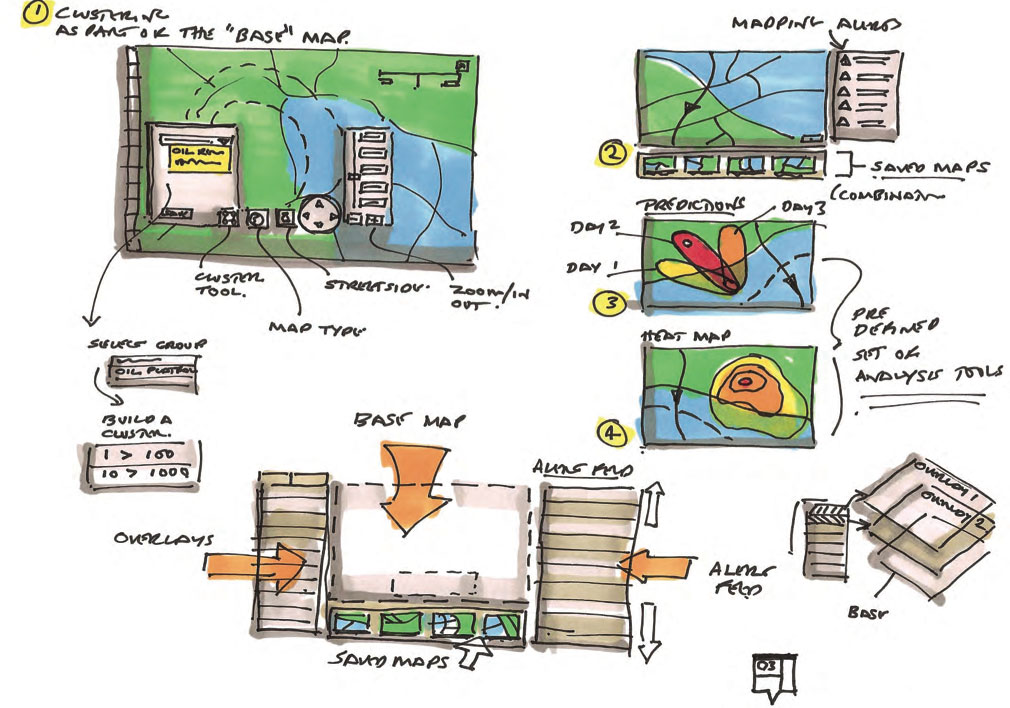 1 CLUSTERING
AS PART OF THE "BASE" MAP.
OIL RIG
CLUSTER
TOOL.
MAP TYPE
STREETSIDE.
ZOOM/IN
OUT.
SELECT GROUP
OIL PLATFORM
BUILD A
CLUSTER.
1 > 100
10 > 1000
MAPPING ALERTS
2
SAVED MAPS
(COMBINATION
PREDICTIONS
DAY 3
DAY 2
DAY 1
3
HEAT MAP
4
PRE
DEFINED
SET OF
ANALYSIS TOOLS
BASE MAP
OVERLAYS
ALERT FEED
ALERT
FEED
SAVED MAPS
OVERLAY 1
OVERLAY 2
BASE
03